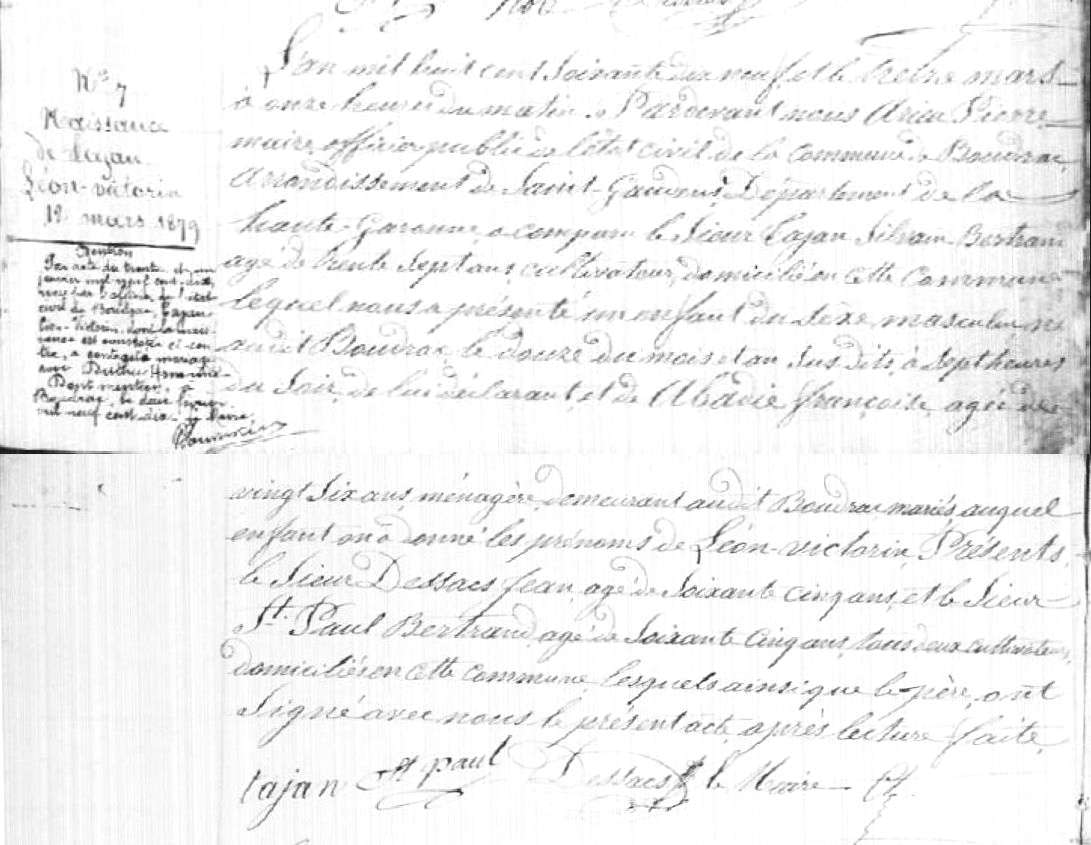 N° 7
Naissance
de Lajan
Léon-victorin
12 mars 1879
Mention
Par acte du trente et un
janvier mil neuf cent dix,
reçu par l'officier de l'état
civil de Boudrac, Lajan
Léon-Victorin, dont la nais-
sance est constatée ci-con-
tre, a contracté mariage
avec
Dont mention, à
Boudrac, le deux février
mil neuf cent dix. Le Maire,
L'an mil huit cent soixante dix neuf et le treize mars
à onze heures du matin. Pardevant nous Pierre
maire officier public de l'état civil de la commune de Boudrac
arrondissement de Saint-Gaudens, Département de la
haute-Garonne, a comparu le sieur Lajan Silvain Bertrand
agé de trente sept ans, cultivateur, domicilié en cette commune
lequel nous a présenté un enfant du sexe masculin né
audit Boudrac le douze du mois et an susdits, à sept heures
du soir, de lui déclarant, et de Abadie françoise, agée de
vingt six ans, ménagère, demeurant audit Boudrac mariés, auquel
enfant on a donné les prénoms de Léon-victorin, Présents
le sieur Dessacs Jean, agé de soixante cinq ans, et le sieur
St. Paul Bertrand, agé de soixante cinq ans, tous deux cultivateurs,
domiciliés en cette commune, lesquels ainsi que le père, ont
signé avec nous le présent acte, après lecture faite.
Lajan St paul Dessacs le Maire